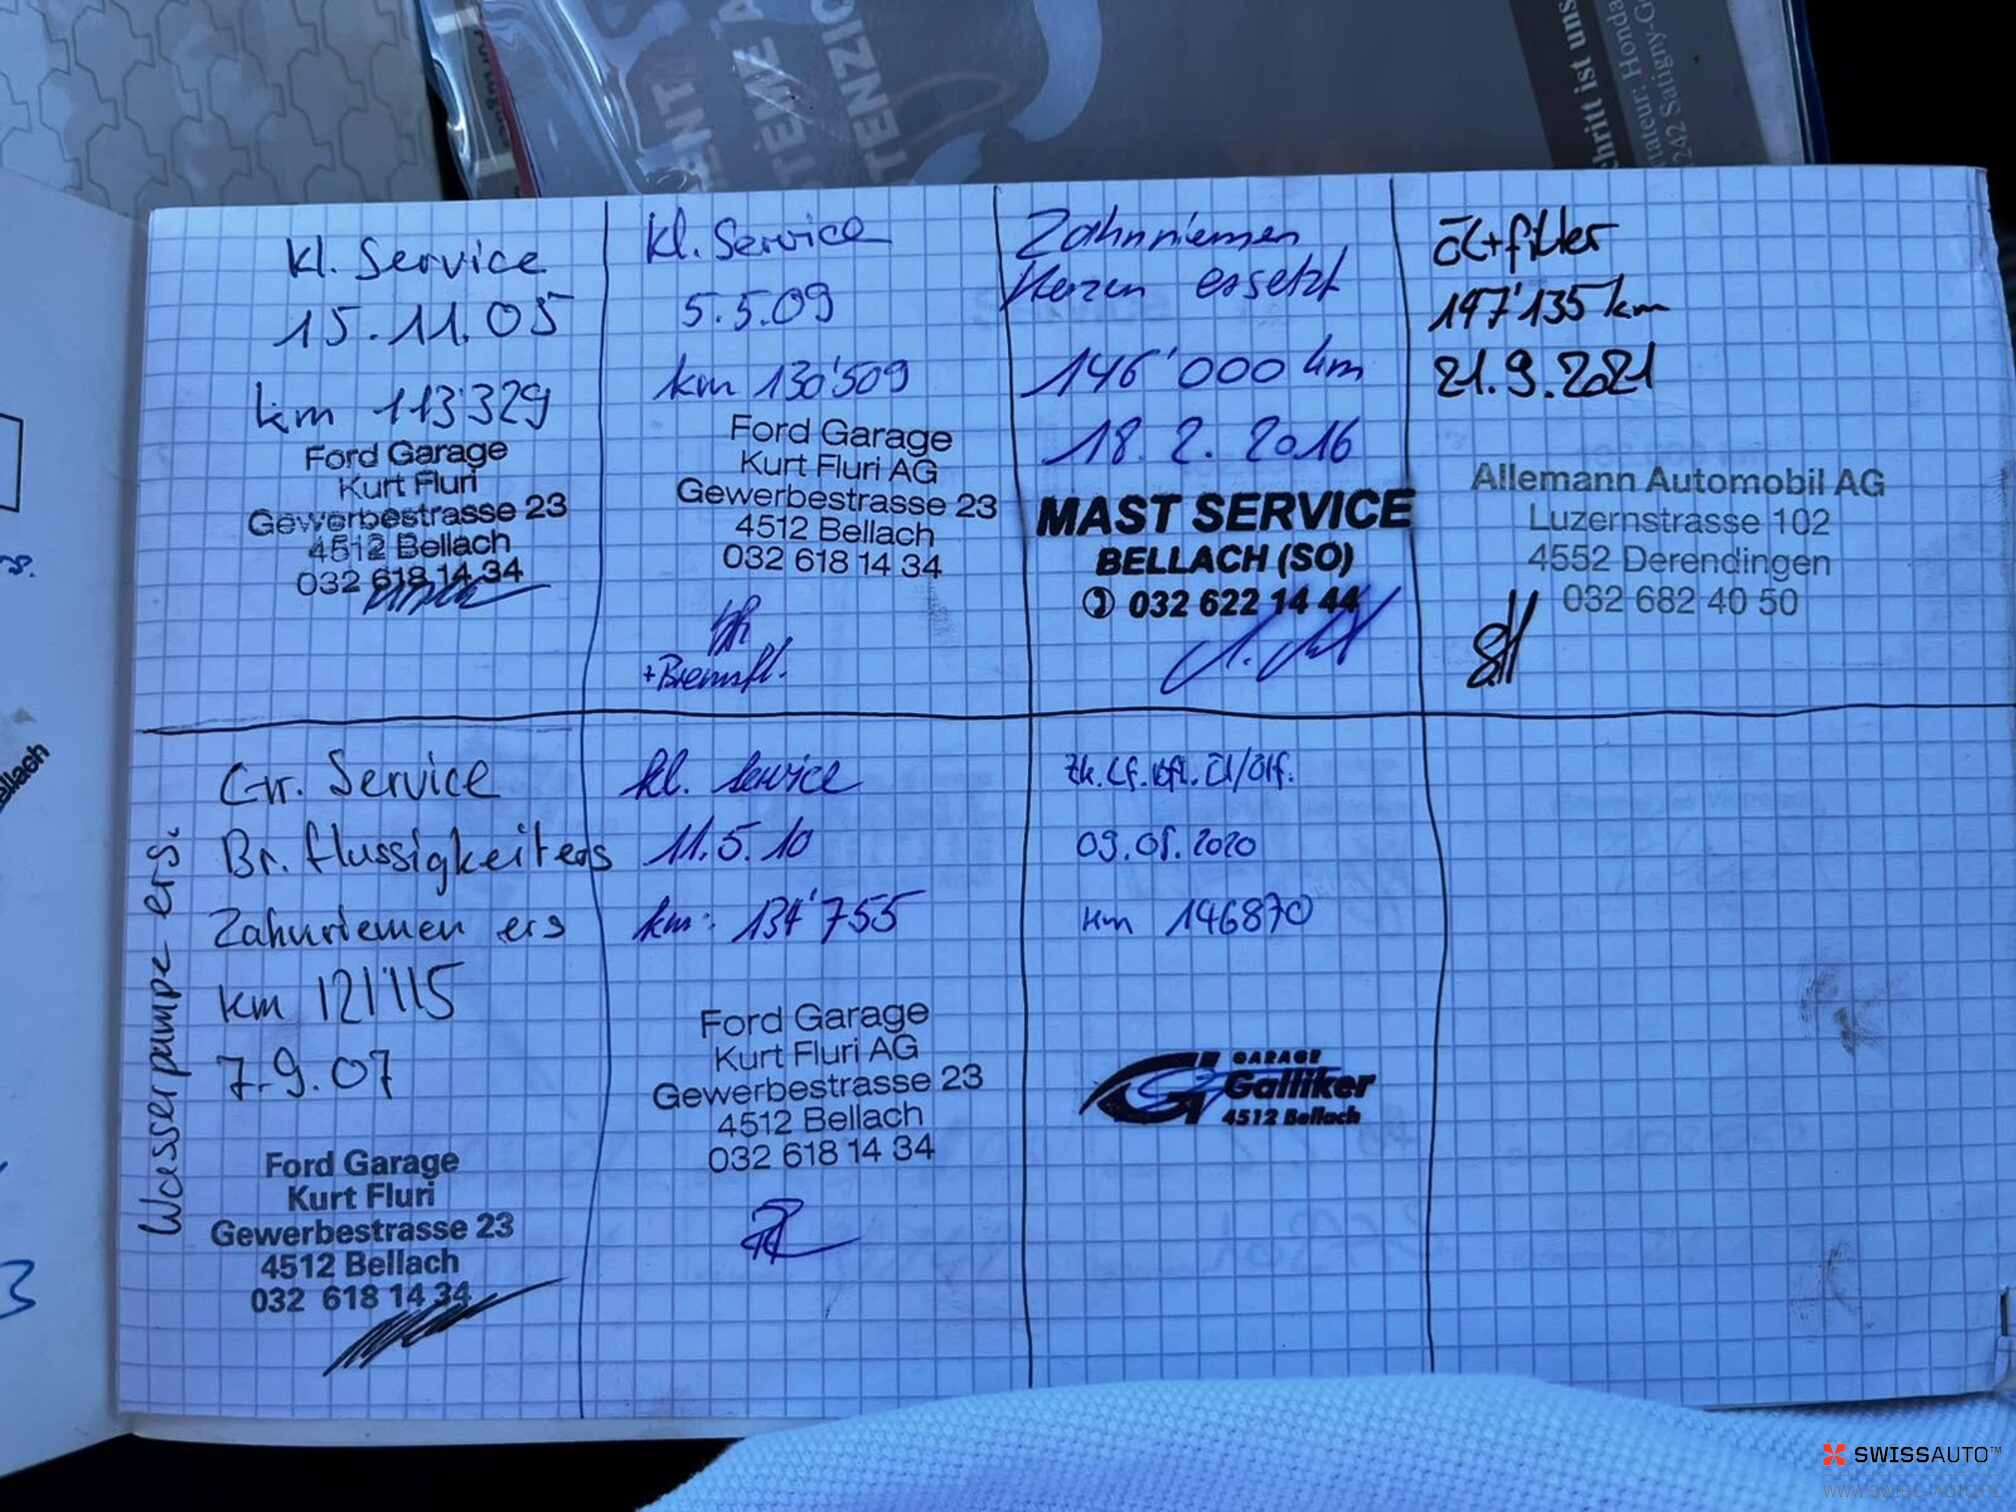 ENT
STÈME A
TENZIO
chritt ist uns
rtateur: Honda
242 Satigny-G
kl. Service
15.11.05
km 113'329
Ford Garage
Kurt Fluri
Gewerbestrasse 23
4512 Bellach
032 618 14 34
Gr. Service
Br. flussigkeit ers
Zahnriemen ers
km 121'115
7.9.07
Wasserpumpe ers.
Ford Garage
Kurt Fluri
Gewerbestrasse 23
4512 Bellach
032 618 14 34
kl. Service
5.5.09
km 130'509
Ford Garage
Kurt Fluri AG
Gewerbestrasse 23
4512 Bellach
032 618 14 34
+Bremsfl.
kl. Service
11.5.10
km: 134'755
Ford Garage
Kurt Fluri AG
Gewerbestrasse 23
4512 Bellach
032 618 14 34
Zahnriemen
Kerzen ersetzt
146'000 km
18.2.2016
MAST SERVICE
BELLACH (SO)
032 622 14 44
Zk. Lf. Bfl. Öl/Ölf.
km 146870
GARAGE
Galliker
4512 Bellach
öl+filter
147'135 km
21.9.2021
Allemann Automobil AG
Luzernstrasse 102
4552 Derendingen
032 682 40 50
ellach
3
SWISSAUTO™
WWW.SWISS-AUTO.PL